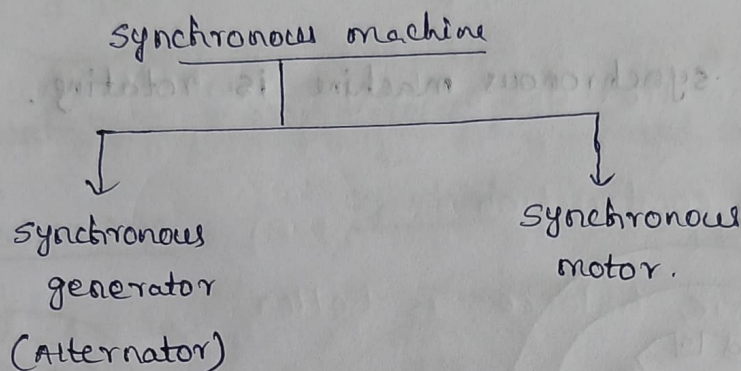 synchronous machine
synchronous
generator
(Alternator)
synchronous
motor.